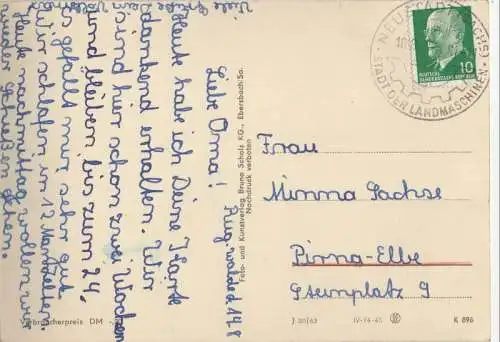 Liebe Oma!
Heute habe ich Deine Karte
dankend erhalten. Wir
sind hier schon zwei Wochen
und bleiben bis zum 24.
es gefällt mir sehr gut
Wir schlafen in 12 Mannzelten.
Heute nachmittag wollen wir
wieder schießen gehen.
Viele Grüße
Foto- und Kunstverlag Bruno Scholz KG., Ebersbach/Sa.
Nachdruck verboten
Verbraucherpreis DM
NEUSTADT (SACHS)
STADT DER LANDMASCHINEN
DEUTSCHE
DEMOKRATISCHE REPUBLIK
10
Frau
Minna Sachse
Pirna-Elbe
platz 9
J 30/63 IV-14-45 K 896